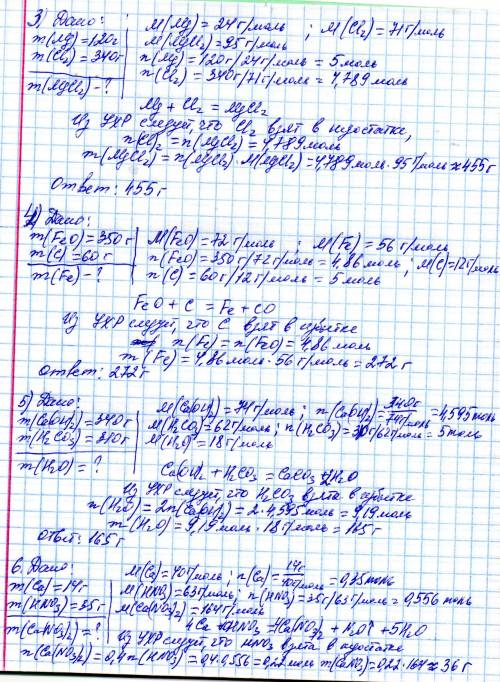 3) Дано:
m(Mg)=120г
m(Cl₂)=340г
m(MgCl₂)-?
M(Mg)=24г/моль ; M(Cl₂)=71г/моль
M(MgCl₂)=95г/моль
n(Mg)=120г/24г/моль=5моль
n(Cl₂)=340г/71г/моль=4,789моль
Mg + Cl₂ = MgCl₂
Из УХР следует, что Cl₂ взят в недостатке,
n(Cl₂)=n(MgCl₂)=4,789моль
m(MgCl₂)=n(MgCl₂)·M(MgCl₂)=4,789моль·95г/моль≈455г
Ответ: 455г
4) Дано:
m(FeO)=350г
m(C)=60г
m(Fe)-?
M(FeO)=72г/моль ; M(Fe)=56г/моль
n(FeO)=350г/72г/моль=4,86моль ; M(C)=12г/моль
n(C)=60г/12г/моль=5моль
FeO+C=Fe+CO
Из УХР следует, что C взят в избытке
n(Fe)=n(FeO)=4,86моль
m(Fe)=4,86моль·56г/моль=272г
Ответ: 272г
5) Дано:
m(Ca(OH)₂)=340г
m(H₂CO₃)=310г
m(H₂O)=?
M(Ca(OH)₂)=74г/моль ; n(Ca(OH)₂)=340г/74г/моль=4,595моль
M(H₂CO₃)=62г/моль ; n(H₂CO₃)=310г/62г/моль=5моль
M(H₂O)=18г/моль
Ca(OH)₂ + H₂CO₃ = CaCO₃ + 2H₂O
Из УХР следует, что H₂CO₃ взята в избытке
n(H₂O)=2n(Ca(OH)₂)=2·4,595моль=9,19моль
m(H₂O)=9,19моль·18г/моль=165г
Ответ: 165г
6. Дано:
m(Ca)=14г
m(HNO₃)=35г
m(Ca(NO₃)₂)=?
M(Ca)=40г/моль ; n(Ca)=14г/40г/моль=0,35моль
M(HNO₃)=63г/моль ; n(HNO₃)=35г/63г/моль=0,556моль
M(Ca(NO₃)₂)=164г/моль
4Ca + HNO₃ = 4Ca(NO₃)₂ + N₂O↑ + 5H₂O
Из УХР следует, что HNO₃ взята в недостатке
n(Ca(NO₃)₂)=0,4n(HNO₃)=0,4·0,556=0,22моль m(CaNO₃)=0,22·164≈36г